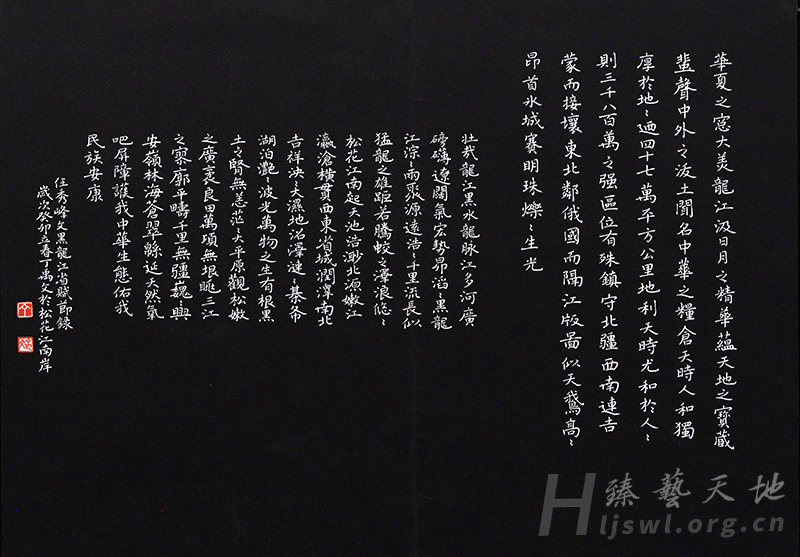 華夏之寬大美龍江汲日月之精華蘊天地之寶藏
蜚聲中外之沃土聞名中華之糧倉天時人和獨
厚於地〻迺四十七萬平方公里地利天時尤和於人〻
則三千八百萬之强區位有殊鎮守北疆西南連吉
蒙而接壤東北鄰俄國而隔江版圖似天鵝高〻
昂首冰城賽明珠爍〻生光
壯哉龍江黑水龍脉江多河廣
磅礴遼闊氣宏勢昂滔〻黑龍
江淙〻雨聚源遠浩〻千里流長似
猛龍之雄距若騰蛟之澤浪
松花江南起天池浩渺北源嫩江
瀛滄橫貫西東省城潤澤南北
吉祥泱〻濕地沼澤漣〻綦布
湖泊灧〻波光萬物之生有根黑
土〻腎無恙茫〻大平原觀松嫩
之廣袤良田萬頃無垠眺三江
之寥廓平疇千里無疆巍〻興
安嶺林海蒼翠緜延天然氧
吧屏障護我中華生態佑我
民族安康
任秀峰文黑龍江省賦節錄
歲次癸卯立春丁禹文於松花江南岸
臻藝天地
Hljswl.org.cn